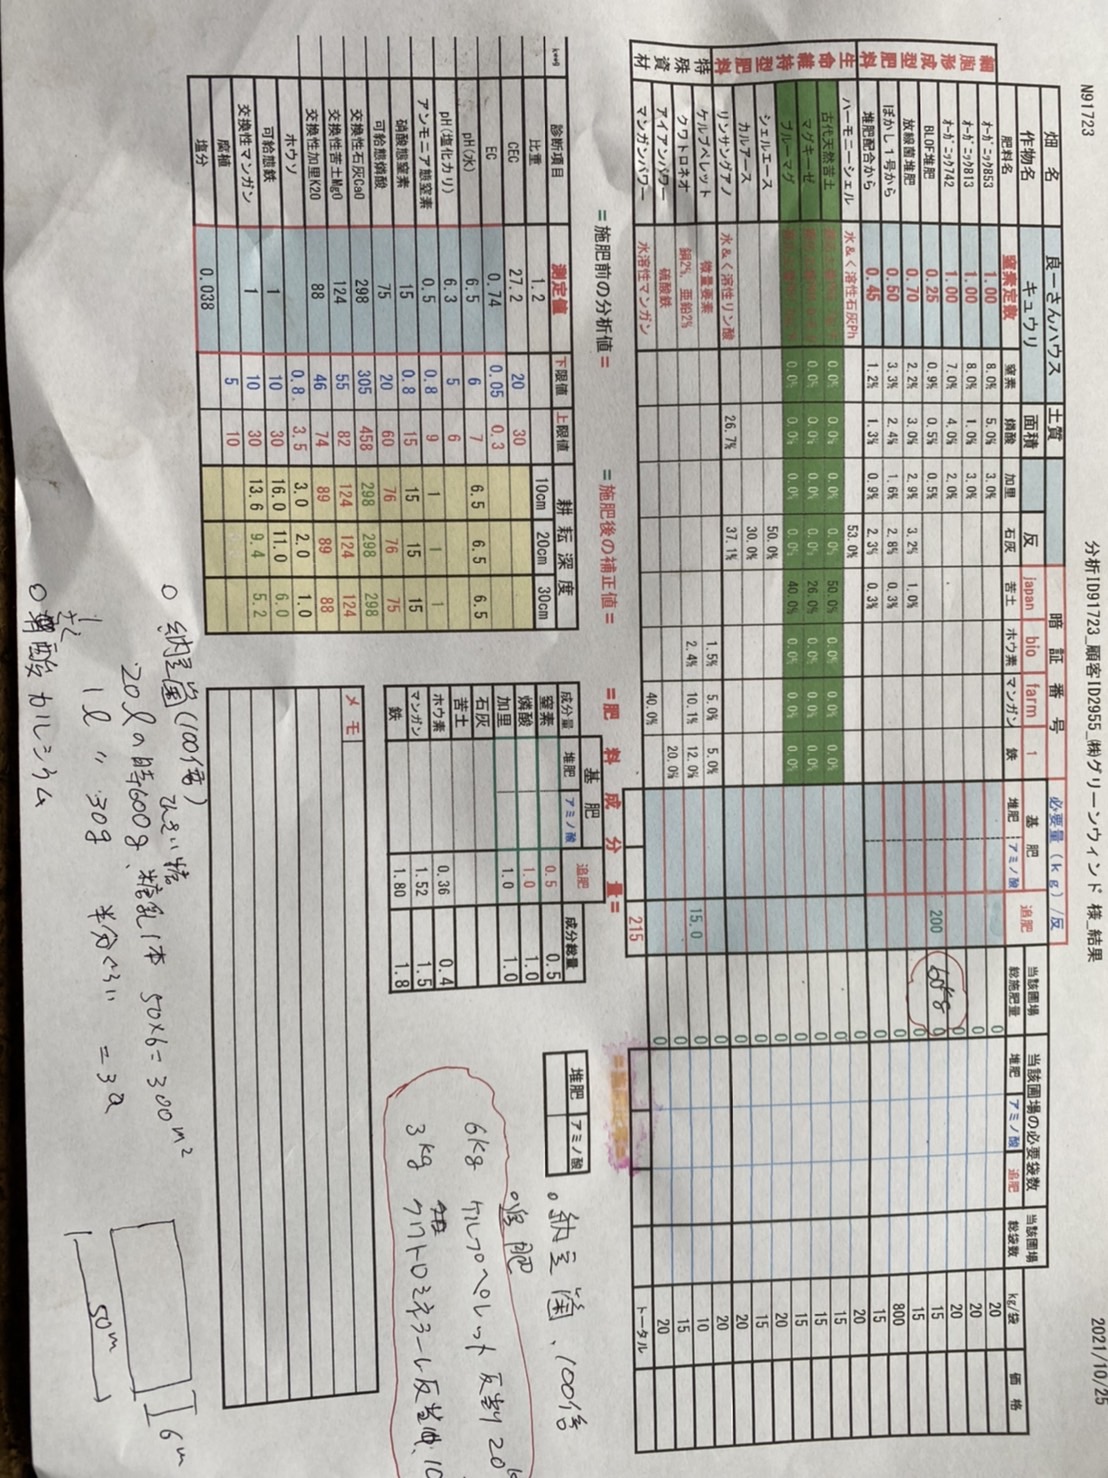 N91723 分析ID91723_顧客ID2955_㈱グリーンウィンド 様_結果 2021/10/25
畑 名 良一さんハウス 土質 暗 証 番 号 必要量(kg)/反 当該圃場 総施肥量 当該圃場の必要袋数 当該圃場 総袋数 kg/袋 価 格
作物名 キュウリ 面積 反 japan bio farm 1 基 肥 追肥
肥料名 窒素定数 窒素 燐酸 加里 石灰 苦土 ホウ素 マンガン 鉄 堆肥 アミノ酸 堆肥 アミノ酸 追肥
細胞形成型肥料
オーガニック853 1.00 8.0% 5.0% 3.0% 0 20
オーガニック813 1.00 8.0% 1.0% 3.0% 0 20
オーガニック742 1.00 7.0% 4.0% 2.0% 0 20
BLOF堆肥 0.25 0.9% 0.5% 0.5% 200 60kg 0 15
放線菌堆肥 0.70 2.2% 3.0% 2.9% 3.2% 1.0% 0 15
ぼかし1号から 0.50 3.3% 2.4% 1.6% 2.8% 0.3% 0 800
堆肥配合から 0.45 1.2% 1.3% 0.9% 2.3% 0.3% 0 15
生命維持型肥料
ハーモニーシェル 水&く溶性石灰Ph 53.0% 0 20
古代天然苦土 0.0% 0.0% 0.0% 0.0% 50.0% 0.0% 0.0% 0.0% 0 15
マグキーゼ 0.0% 0.0% 0.0% 0.0% 26.0% 0.0% 0.0% 0.0% 0 15
ブルーマグ 0.0% 0.0% 0.0% 0.0% 40.0% 0.0% 0.0% 0.0% 0 20
シェルエース 50.0% 0 15
カルアース 30.0% 0 20
リンサングアノ 水&く溶性リン酸 26.7% 37.1% 0 20
特殊資材
ケルプペレット 微量要素 1.5% 5.0% 5.0% 15.0 0 10
クワトロネオ 銅2%, 亜鉛2% 2.4% 10.1% 12.0% 0 15
アイアンパワー 硫酸鉄 20.0% 0 20
マンガンパワー 水溶性マンガン 40.0%
215 トータル
=施肥前の分析値= =施肥後の補正値= =肥 料 成 分 量=
診断項目 測定値 下限値 上限値 耕 耘 深 度
10cm 20cm 30cm
比重 1.2
CEC 27.2 20 30
EC 0.74 0.05 0.3
pH(水) 6.5 6 7 6.5 6.5 6.5
pH(塩化カリ) 6.3 5 6
アンモニア態窒素 0.5 0.8 9 1 1 1
硝酸態窒素 15 0.8 15 15 15 15
可給態燐酸 75 20 60 76 76 75
交換性石灰CaO 298 305 458 298 298 298
交換性苦土MgO 124 55 82 124 124 124
交換性加里K2O 88 46 74 89 89 88
ホウソ 0.8 3.5 3.0 2.0 1.0
可給態鉄 1 10 30 16.0 11.0 6.0
交換性マンガン 1 10 30 13.6 9.4 5.2
腐植 5 10
塩分 0.038
成分量 基 肥 追肥 成分総量
堆肥 アミノ酸
窒素 0.5 0.5
燐酸 1.0 1.0
加里 1.0 1.0
石灰
苦土
ホウ素 0.36 0.4
マンガン 1.52 1.5
鉄 1.80 1.8
堆肥 アミノ酸
メ モ
。納豆菌、100倍
。追肥
6kg ケルプペレット 反割 20k
3kg クワトロミネラール反当使. 10
○ 納豆菌(100倍)
20ℓの時600g、糖乳1本 50×6=300m²
1ℓ 〃 30g 半分くらい =3a
○ さく酸カルシウム
50m
6m